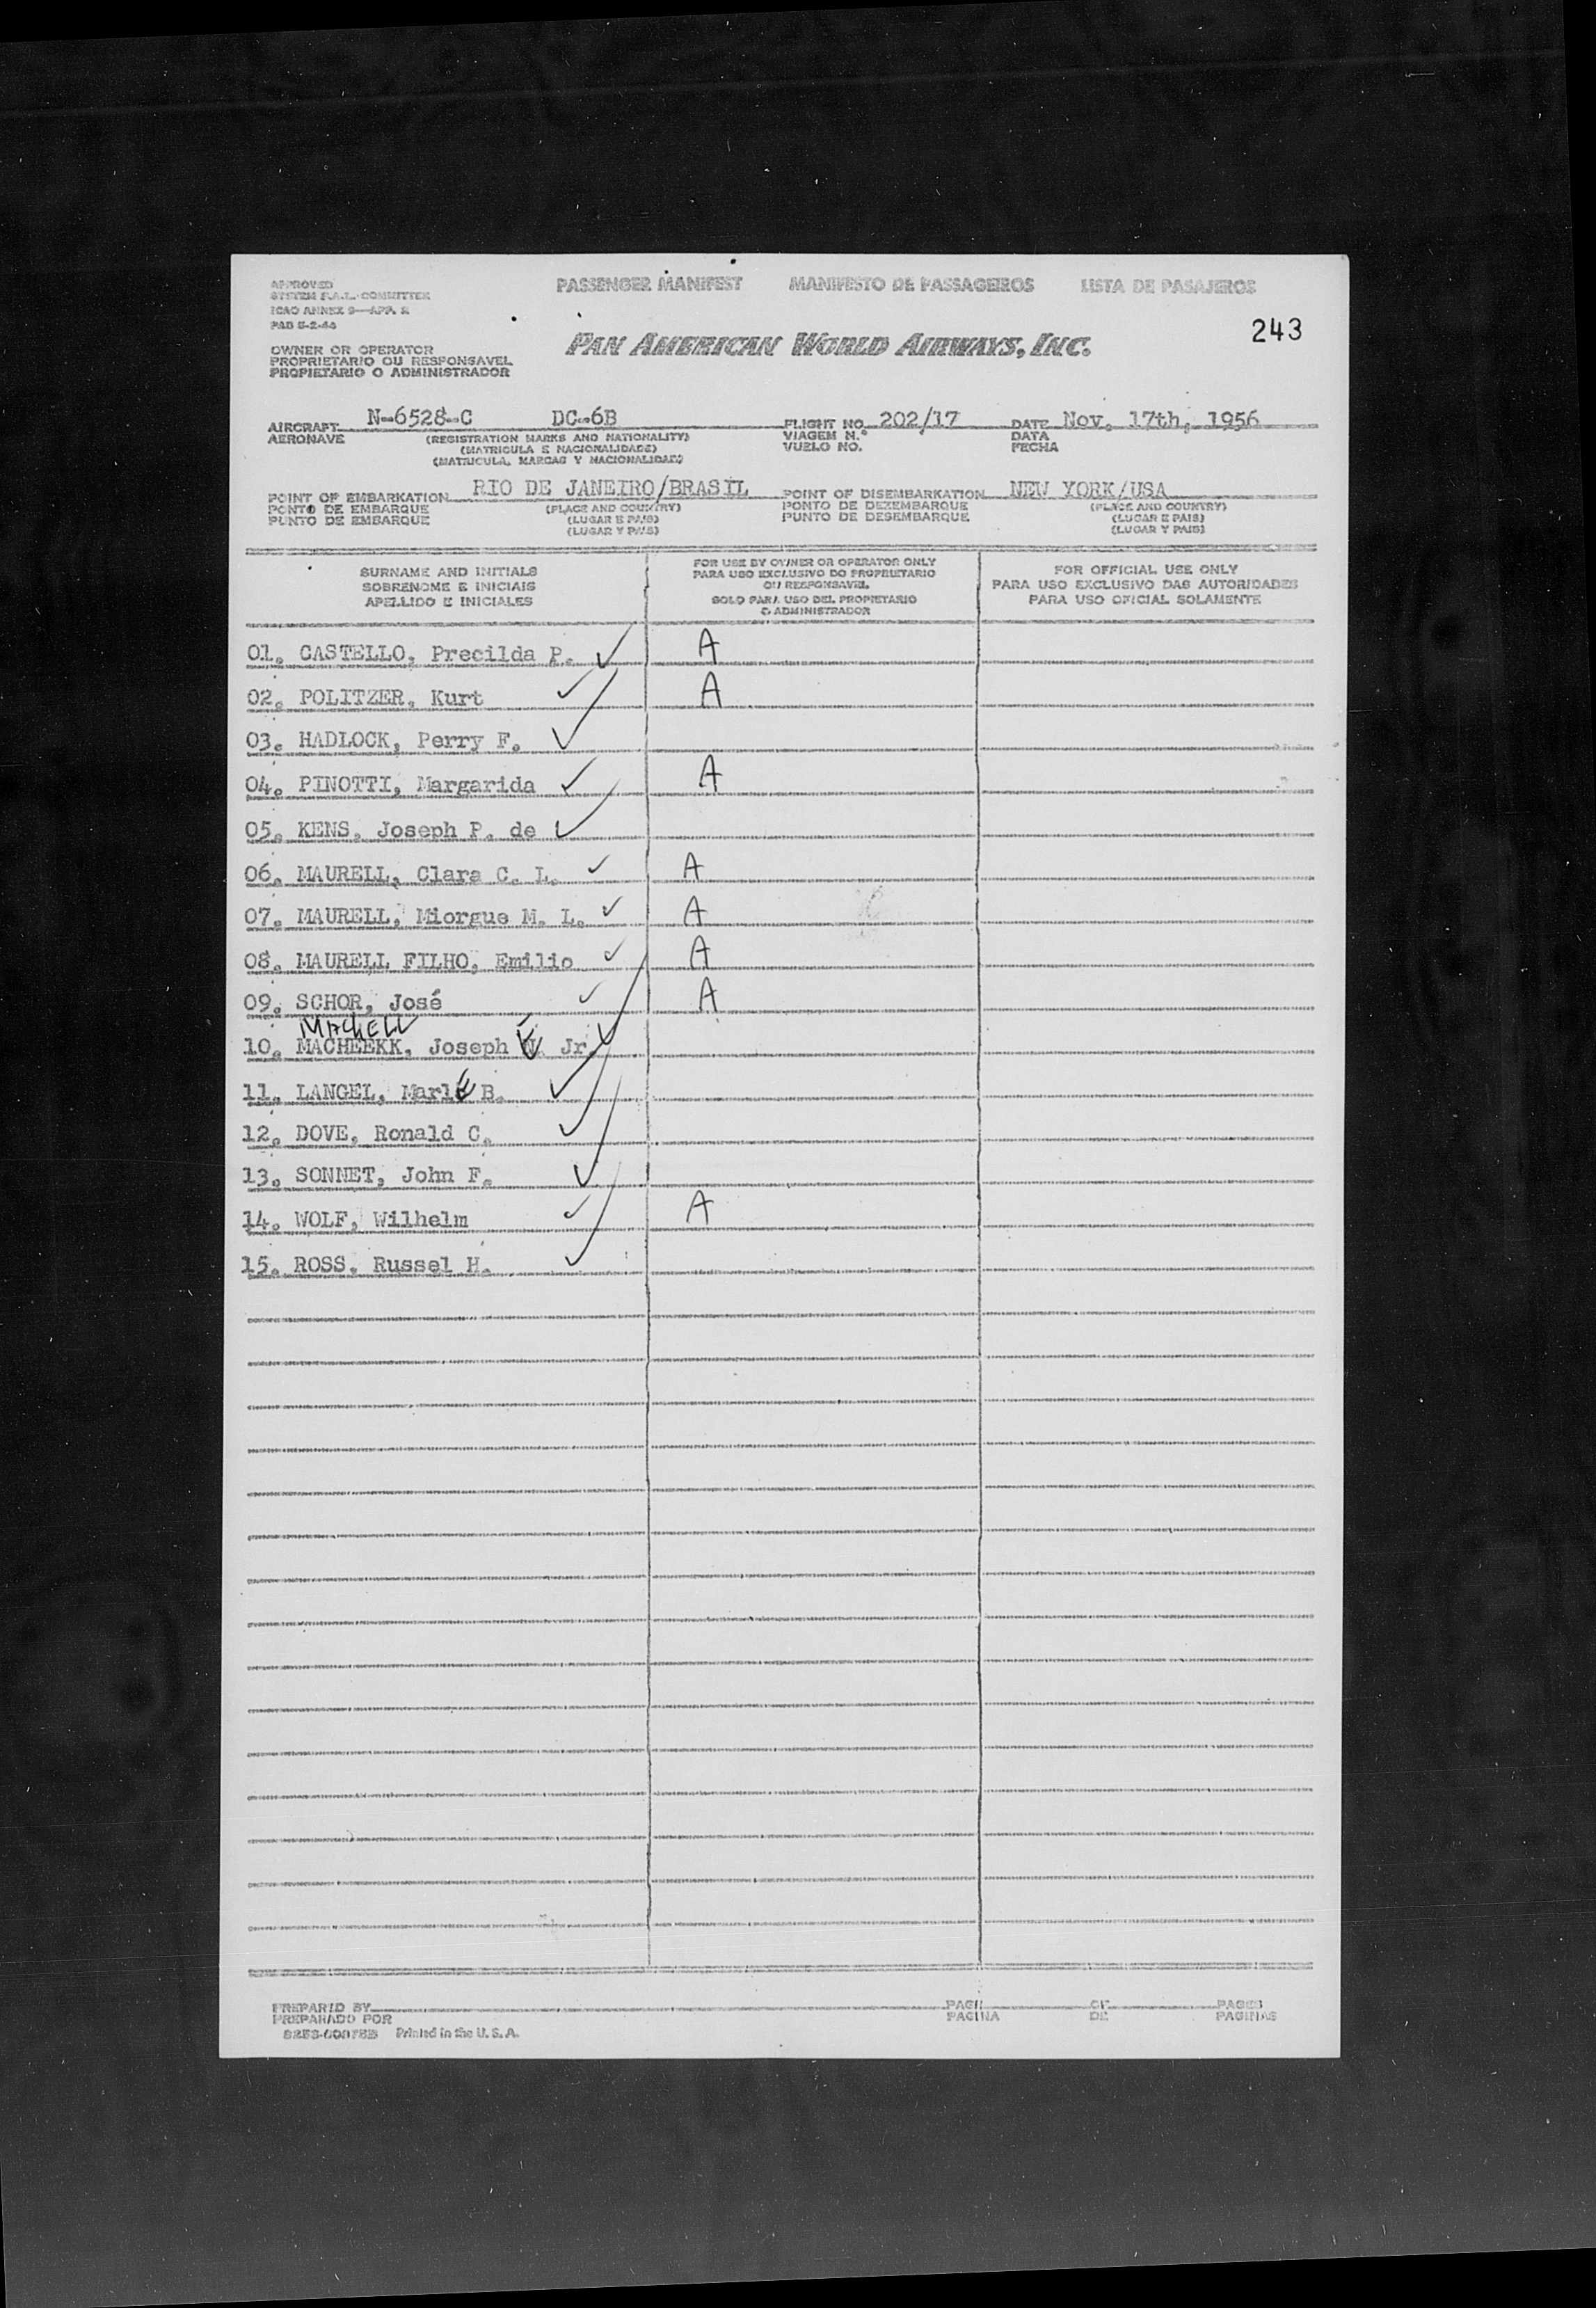 APPROVED PASSENGER MANIFEST MANIFESTO DE PASSAGEIROS LISTA DE PASAJEROS
SYSTEM F.A.L. COMMITTEE
ICAO ANNEX 9—APP. 2
PAB 5-2-44
243
PAN AMERICAN WORLD AIRWAYS, INC.
OWNER OR OPERATOR
PROPRIETARIO OU RESPONSAVEL
PROPIETARIO O ADMINISTRADOR
AIRCRAFT N-6528-C DC-6B FLIGHT NO. 202/17 DATE Nov. 17th, 1956
AERONAVE (REGISTRATION MARKS AND NATIONALITY) VIAGEM N.° DATA
(MATRICULA E NACIONALIDADE) VUELO NO. FECHA
(MATRICULA, MARCAS Y NACIONALIDAD)
POINT OF EMBARKATION RIO DE JANEIRO/BRASIL POINT OF DISEMBARKATION NEW YORK/USA
PONTO DE EMBARQUE (PLACE AND COUNTRY) PONTO DE DEZEMBARQUE (PLACE AND COUNTRY)
PUNTO DE EMBARQUE (LUGAR E PAIS) PUNTO DE DESEMBARQUE (LUGAR E PAIS)
(LUGAR Y PAIS) (LUGAR Y PAIS)
SURNAME AND INITIALS
SOBRENOME E INICIAIS
APELLIDO E INICIALES
FOR USE BY OWNER OR OPERATOR ONLY
PARA USO EXCLUSIVO DO PROPRIETARIO
OU RESPONSAVEL
SOLO PARA USO DEL PROPIETARIO
O ADMINISTRADOR
FOR OFFICIAL USE ONLY
PARA USO EXCLUSIVO DAS AUTORIDADES
PARA USO OFICIAL SOLAMENTE
01. CASTELLO, Precilda P. ✓ A
02. POLITZER, Kurt ✓ A
03. HADLOCK, Perry F. ✓
04. PINOTTI, Margarida ✓ A
05. KENS, Joseph P. de ✓
06. MAURELL, Clara C. L. ✓ A
07. MAURELL, Miorgue M. L. ✓ A
08. MAURELL FILHO, Emilio ✓ A
09. SCHOR, José ✓ A
MACHELL
10. MACHEEKK, Joseph E Jr. ✓
11. LANGEL, Marle B. ✓
12. DOVE, Ronald C. ✓
13. SONNET, John F. ✓
14. WOLF, Wilhelm ✓ A
15. ROSS, Russel H. ✓
PREPARED BY PAGE OF PAGES
PREPARADO POR PAGINA DE PAGINAS
Printed in the U. S. A.